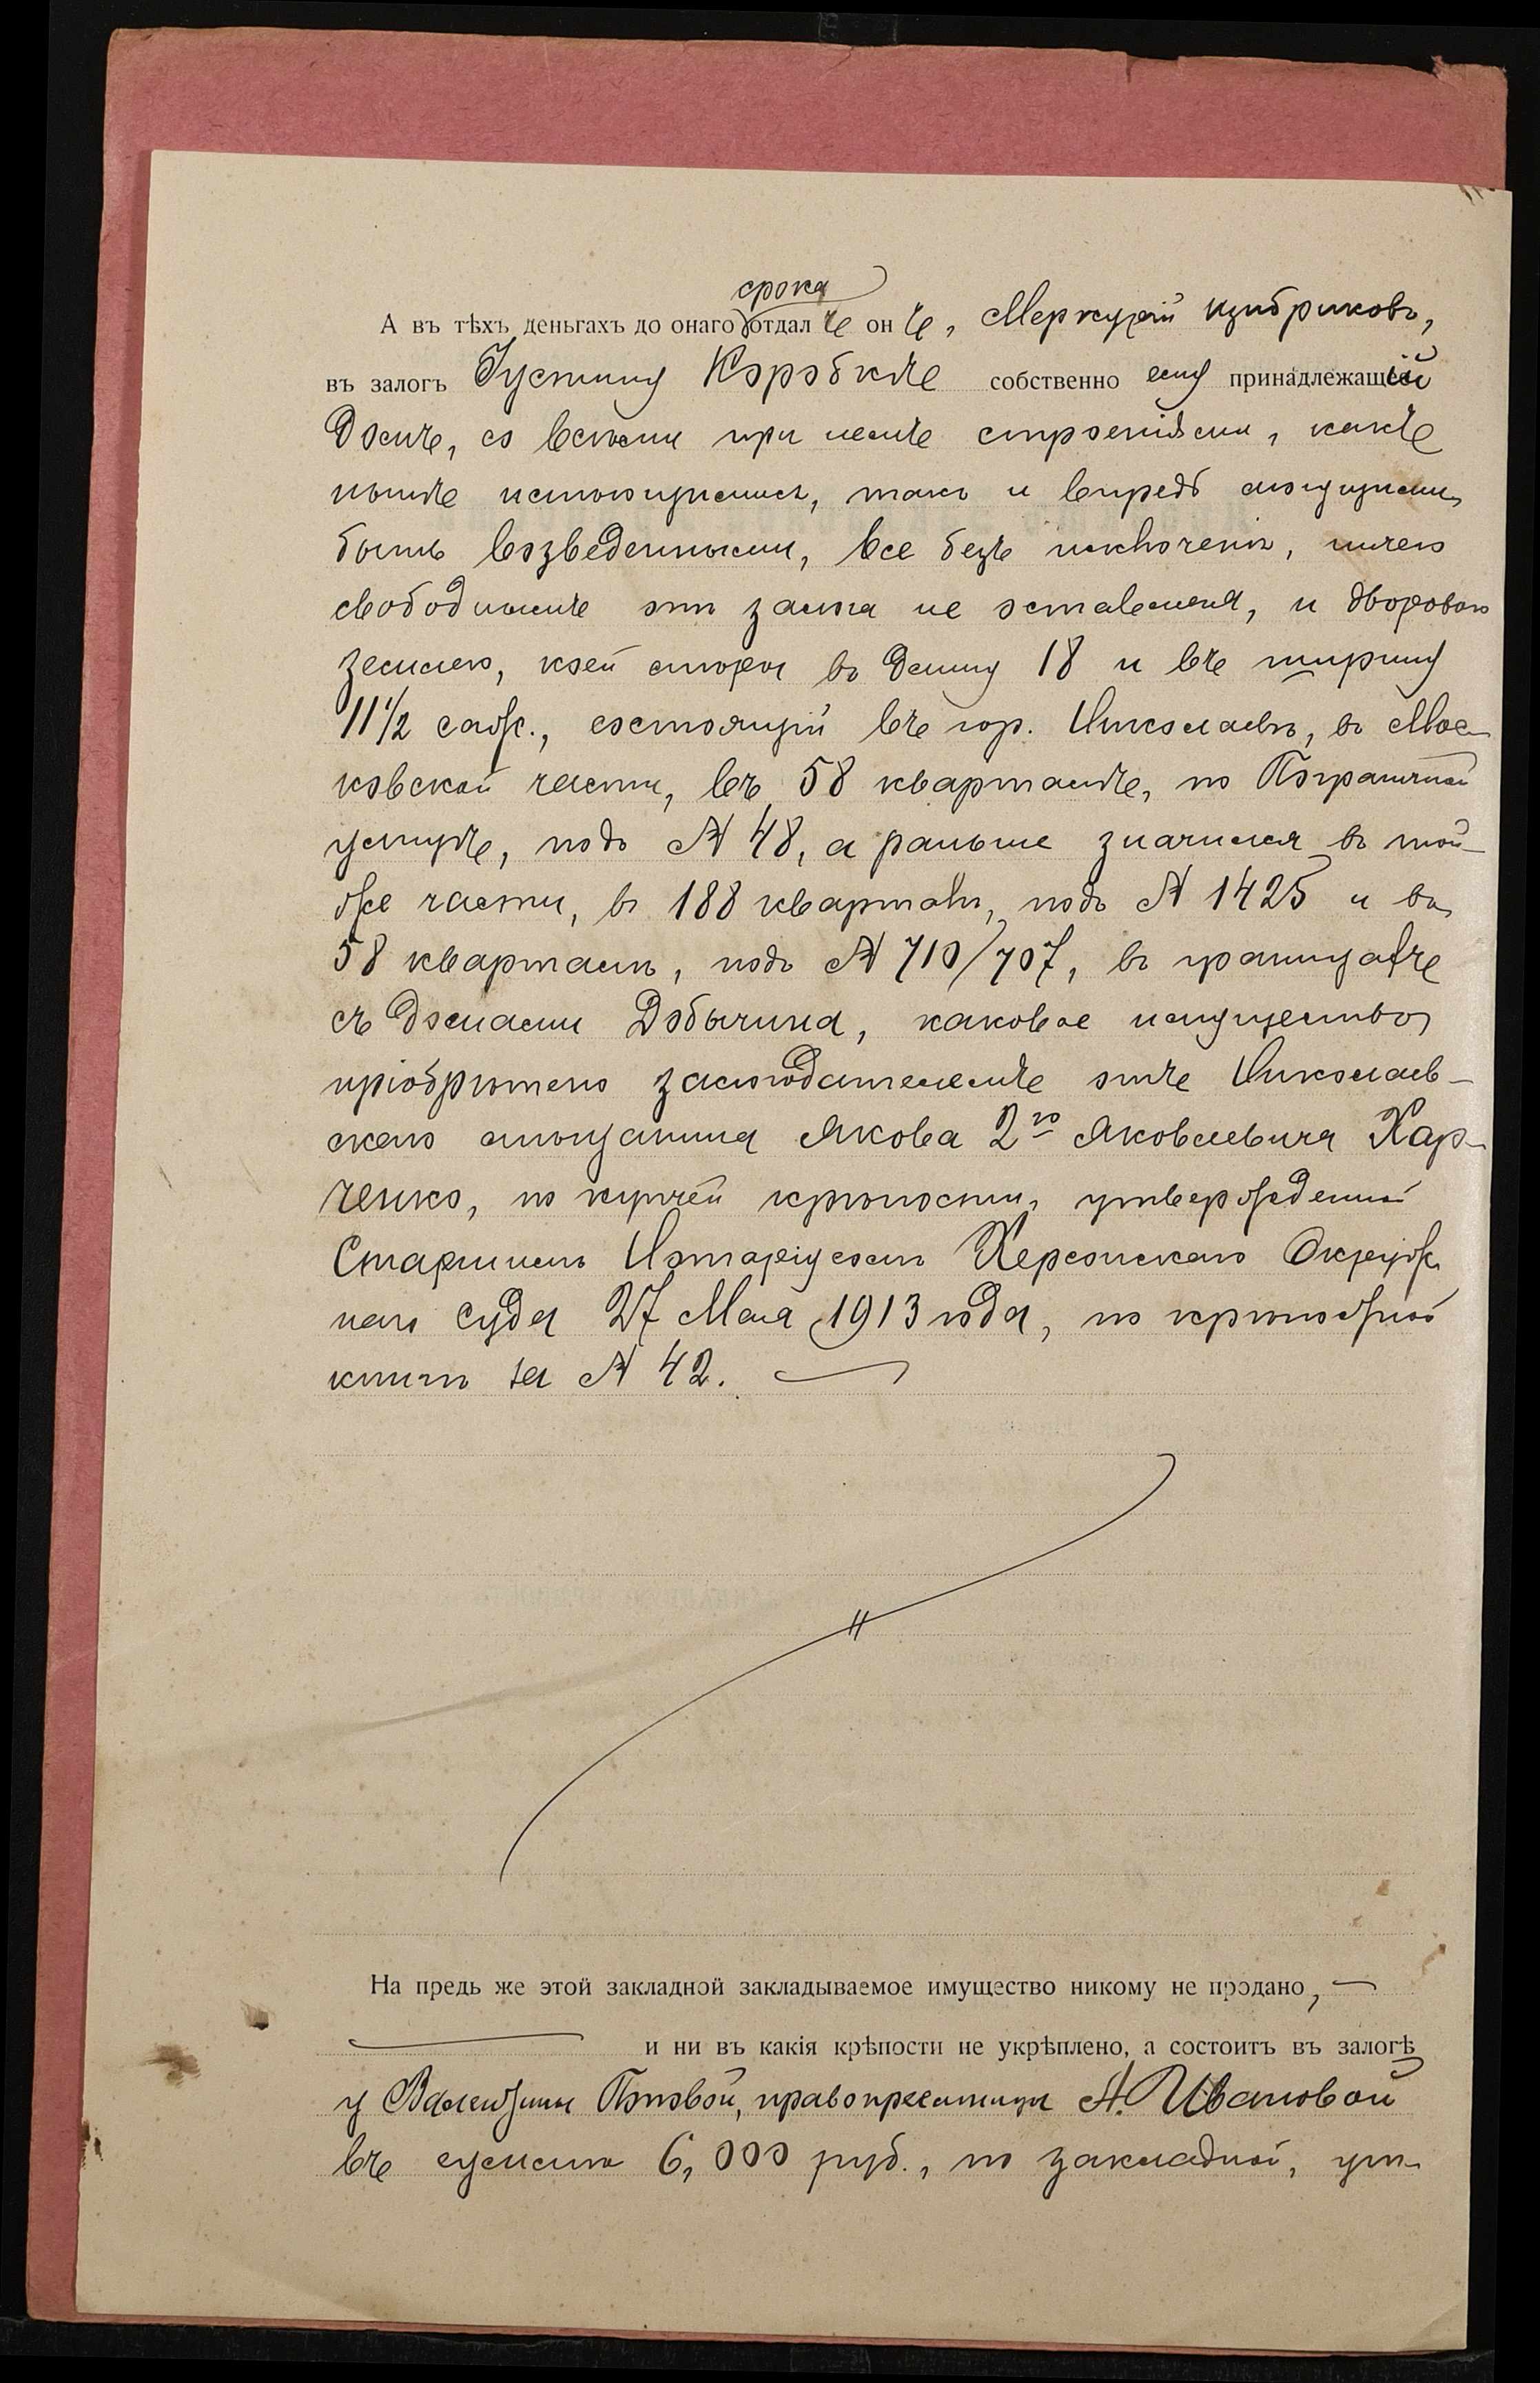 срока
А въ тѣхъ деньгахъ до онаго отдалъ онъ, Меркурій Цыбриковъ,
въ залогъ Густину Коробкѣ собственно ему принадлежащій
домъ, со всѣми при немъ строеніями, какъ
нынѣ имѣющимися, такъ и впредь могущими
быть возведенными, все безъ исключенія, ничего
свободнымъ отъ залога не оставляя, и дворовою
землею, коей мѣрою въ длину 18 и въ ширину
11 1/2 саж., состоящій въ гор. Николаевѣ, въ Мос-
ковской части, въ 58 кварталѣ, по Пограничной
улицѣ, подъ № 48, а раньше значился въ той-
же части, въ 188 кварталѣ, подъ № 1425 и въ
58 кварталѣ, подъ № 710/707, въ границахъ
съ домами Добычина, каковое имущество
пріобрѣтено залогодателемъ отъ Николаев-
скаго мѣщанина Якова 2го Яковлевича Хар-
ченко, по купчей крѣпости, утвержденной
Старшимъ Нотаріусомъ Херсонскаго Окруж-
наго Суда 27 Мая 1913 года, по крѣпостной
книгѣ за № 42.
На предь же этой закладной закладываемое имущество никому не продано,
и ни въ какія крѣпости не укрѣплено, а состоитъ въ залогѣ
у правопреемницы А. Ивановой
въ суммѣ 6,000 руб., по закладной, ут-